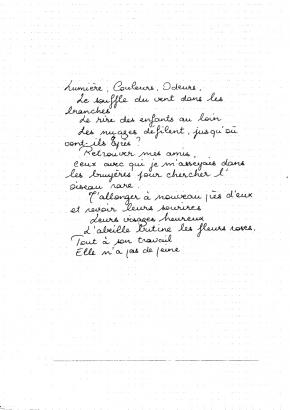 Lumière, Couleurs, Odeurs,
Le souffle du vent dans les
branches
Le rire des enfants au loin
Les nuages défilent, jusqu'où
vont-ils après ?
Retrouver mes amis,
ceux avec qui je m'asseyais dans
les bruyères pour chercher l'
oiseau rare.
M'allonger à nouveau près d'eux
et revoir leurs sourires
Leurs visages heureux
L'abeille butine les fleurs roses,
Tout à son travail
Elle n'a pas de peine